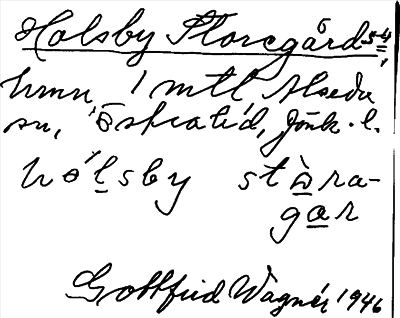 Holsby Storegård s-4,
hmn, 1 mtl, Alseda
sn, Östra hd, Jönk. l.
hólsby stòra-
gar
Gottfrid Wagnér 1946